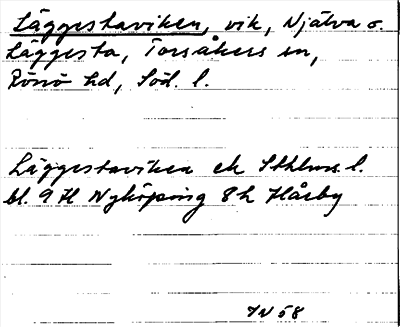 Läggestaviken, vik, Njätva o.
Läggesta, Torsåkers sn,
Rönö hd, Söd. l.
Läggestaviken ek Sthlms l.
bl. 9 H Nyköping 8 h Håsby
IN 58